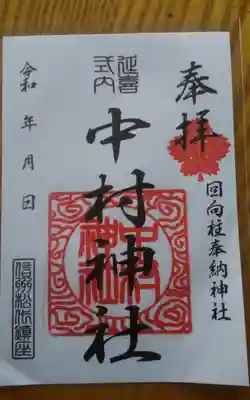 奉拝
回向柱奉納神社
延喜
式内
中村神社
中村
神社
令和　年　月　日
信州松代鎮座